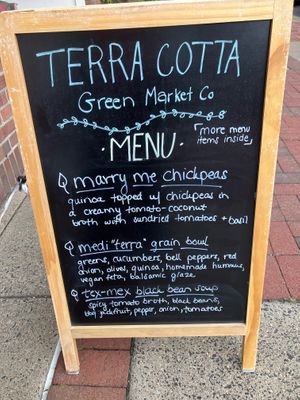 TERRA COTTA
Green Market Co
MENU
more menu
items inside
marry me chickpeas
quinoa topped w/ chickpeas in
a creamy tomato-coconut
broth with sundried tomatoes + basil
medi "terra" grain bowl
greens, cucumbers, bell peppers, red
onion, olives, quinoa, homemade hummus,
vegan feta, balsamic glaze
tex-mex black bean soup
spicy tomato broth, black beans,
bbq jackfruit, pepper, onion, tomatoes